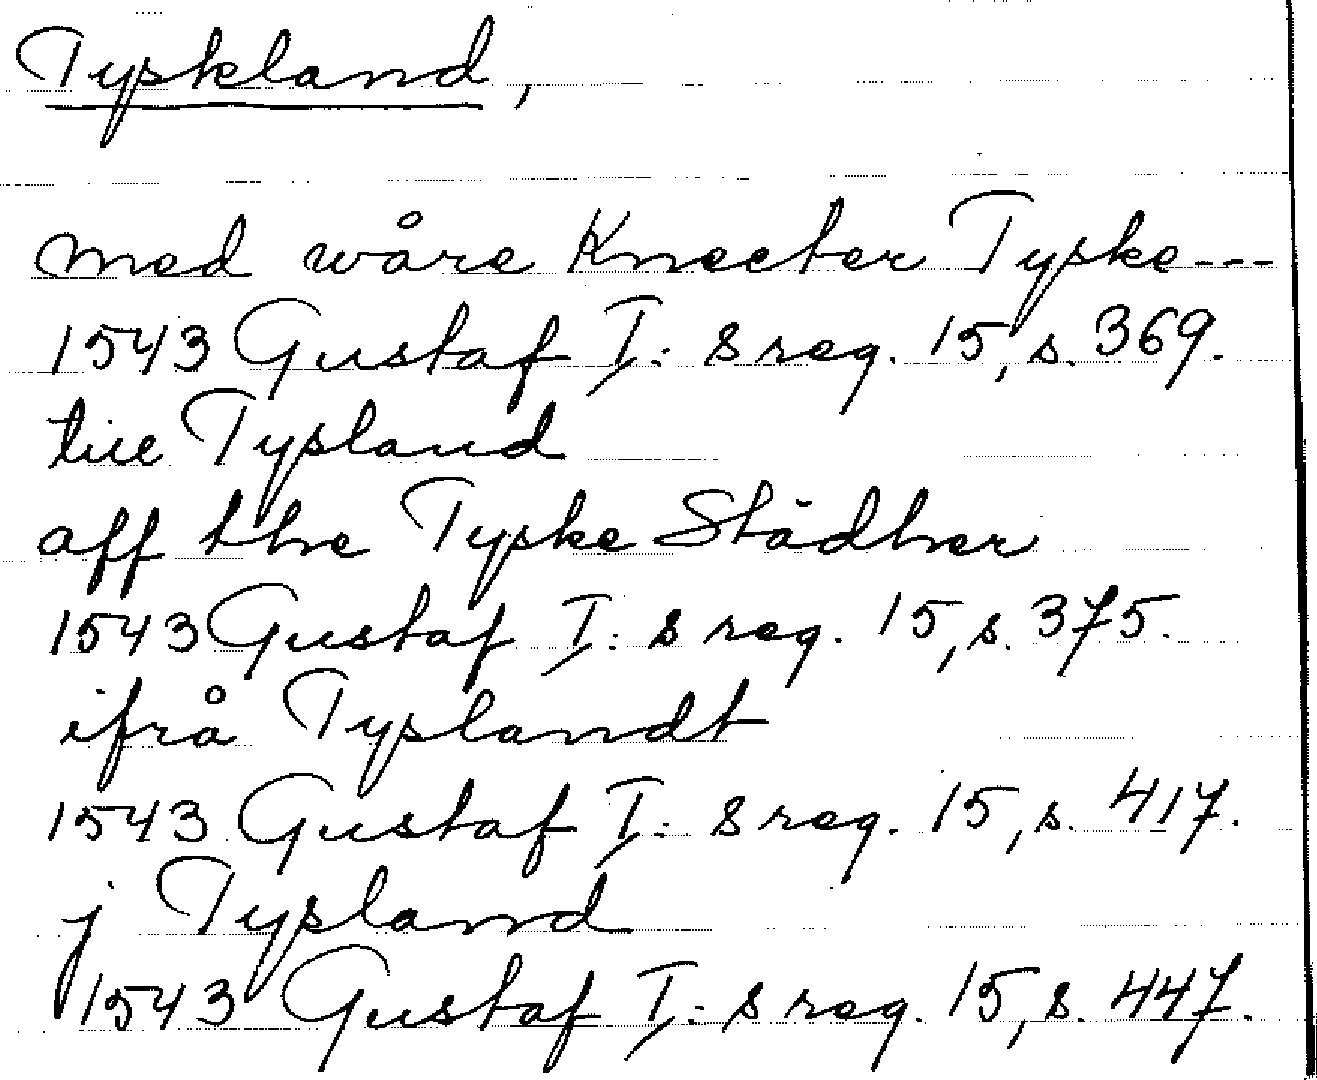 Tyskland,
med wåre Knecter Tyske---
1543 Gustaf I:s reg. 15, s. 369.
till Tysland
aff the Tyske Städher
1543 Gustaf I:s reg. 15, s. 375.
ifrå Tyslandt
1543 Gustaf I:s reg. 15, s. 417.
j Tysland
1543 Gustaf I:s reg. 15, s. 447.